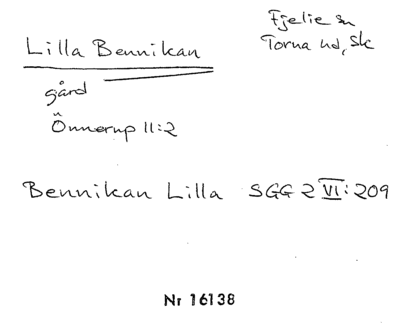 Fjelie sn
Torna hd, Sk
Lilla Bennikan
gård
Önnerup 11:2
Bennikan Lilla SGG 2 VI: 209
Nr 16138